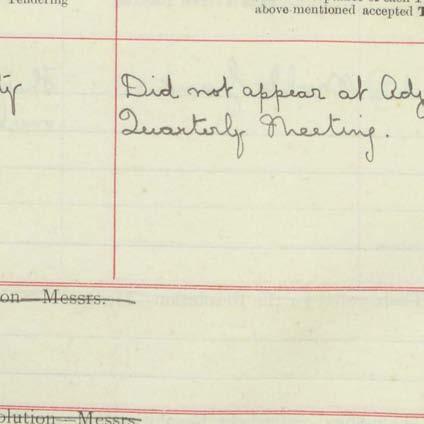 Tendering
above-mentioned accepted T
ty
Did not appear at Adj
Quarterly Meeting.
on—Messrs.
olution—Messrs